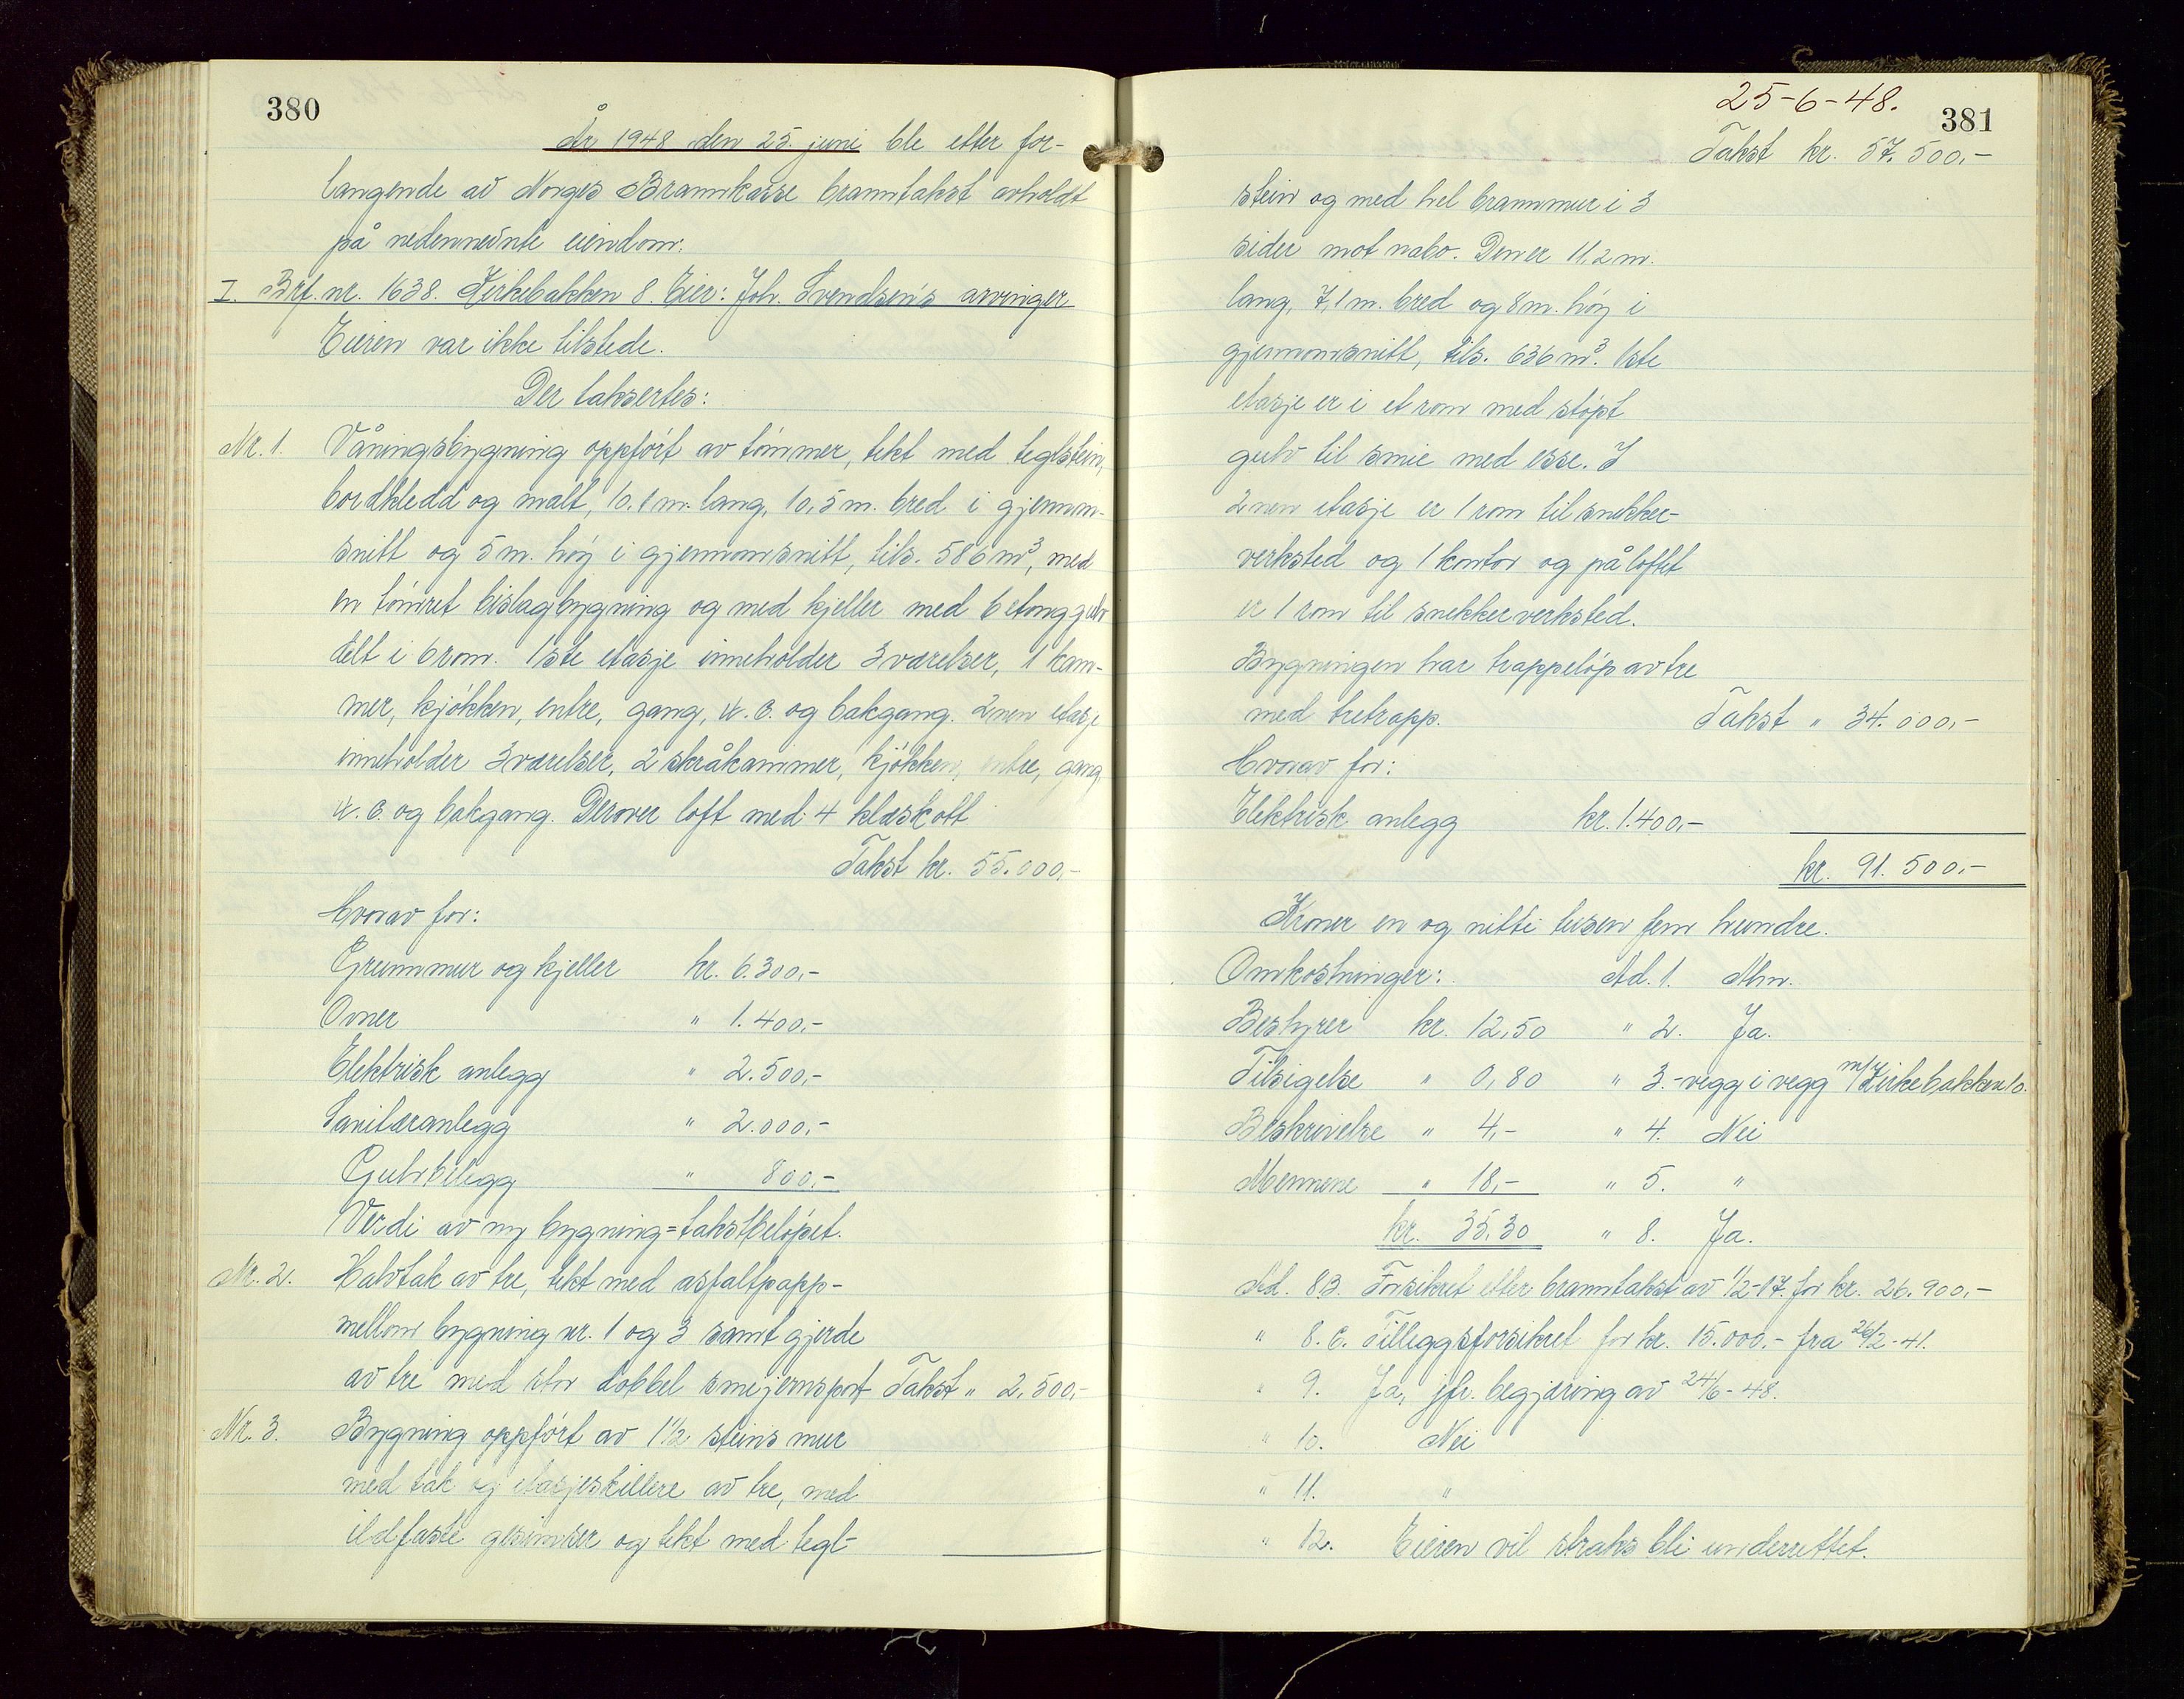 380
År 1948 den 25. juni ble etter for-
langende av Norges Brannkasse branntakst avholdt
på nedennevnte eiendom:
I. Brf. nr. 1638. Kirkebakken 8. Eier: Joh. Svendsen's arvinger
Eieren var ikke tilstede.
Der taksertes:
Nr. 1. Våningsbygning oppført av tømmer, tekt med teglstein,
bordkledd og malt, 10.1 m. lang, 10,5 m. bred i gjennom-
snitt og 5 m. høy i gjennomsnitt, tils. 586 m³, med
en tømret bislagbygning og med kjeller med betonggulv
delt i 6 rom. 1ste etasje inneholder 3 værelser, 1 kam-
mer, kjøkken, entre, gang, w.c. og bakgang. 2nen etasje
inneholder 3 værelser, 2 skråkammer, kjøkken, entre, gang
w.c. og bakgang. Derover loft med 4 kleskott
Takst kr. 55.000,-
Hvorav for:
Grunnmur og kjeller kr. 6.300,-
Ovner " 1.400,-
Elektrisk anlegg " 2.500,-
Sanitæranlegg " 2.000,-
Gulvbelegg " 800,-
Verdi av ny bygning = takstbeløpet.
Nr. 2. Halvtak av tre, tekt med asfaltpapp-
mellom bygning nr. 1 og 3 samt gjerde
av tre med stor dobbel smijernsport Takst " 2,500,-
Nr. 3. Bygning oppført av 1½ steins mur
med tak og etasjeskillere av tre, med
ildfaste gesimser og tekt med tegl-
25-6-48.
381
Takst kr. 57.500,-
stein og med hel brannmur i 3
sider mot nabo. Den er 11,2 m.
lang, 7,1 m. bred og 8 m. høy i
gjennomsnitt, tils. 636 m³. 1ste
etasje er i et rom med støpt
gulv til smie med esse. I
2nen etasje er 1 rom til snekker-
verksted og 1 kontor og på loftet
er 1 rom til snekkerverksted.
Bygningen har trappeløp av tre
med tretrapp. Takst " 34.000,-
Hvorav for:
Elektrisk anlegg kr. 1.400,-
kr. 91.500,-
Kroner en og nitti tusen fem hundre.
Omkostninger: Ad. 1. Alm.
Bestyrer kr. 12,50 " 2. Ja.
Tilsigelse " 0,80 " 3.- vegg i vegg m/nr Kirkebakken 10.
Beskrivelse " 4,- " 4. Nei
Mennene " 18,- " 5. "
kr. 35,30 " 8. Ja.
Ad. 8B. Forsikret etter branntakst av 1/2-17. for kr. 26.900,-
" 8.C. Tilleggsforsikret for kr. 15.000.- fra 26/2-41.
" 9. Ja, jfr. begjæring av 24/6-48.
" 10. Nei
" 11. "
" 12. Eieren vil straks bli underrettet.